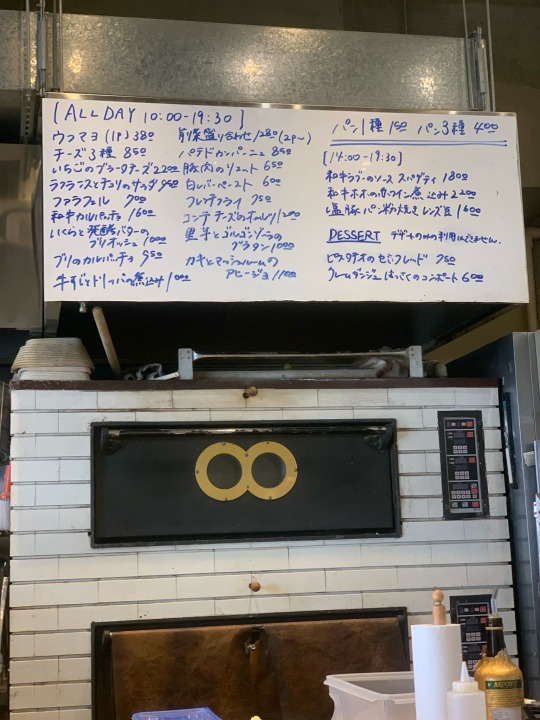 [ALL DAY 10:00-19:30]
ウフマヨ (1P) 380
チーズ3種 850
いちごのブラータチーズ 2200
ラフランスとチコリのサラダ 950
ファラフェル 900
和牛カルパッチョ 1600
いくらと発酵バターの
ブリオッシュ 1000
ブリのカルパッチョ 950
牛すじとトリッパの煮込み 1000
前菜盛り合わせ 1280 (2P〜)
パテドカンパーニュ 850
豚肉のリエット 650
白レバーペースト 600
フレンチフライ 750
コンテチーズのオムレツ 1200
里芋とゴルゴンゾーラの
グラタン 1000
カキとマッシュルームの
アヒージョ 1100
パン1種 100 パン3種 400
[14:00-19:30]
和牛ラグーソース スパゲティ 1800
和牛ホホの赤ワイン煮込み 2200
塩豚パン粉焼き レンズ豆 1600
DESSERT デザートのみの利用はできません。
ピスタチオのセミフレッド 750
クレームダンジュ はっさくのコンポート 600